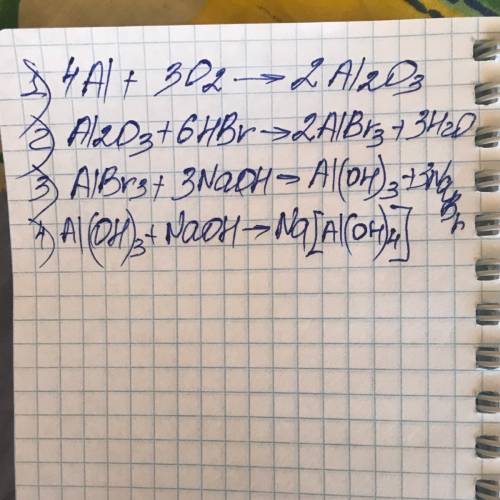 1) 4Al + 3O2 → 2Al2O3
2) Al2O3 + 6HBr → 2AlBr3 + 3H2O
3) AlBr3 + 3NaOH → Al(OH)3 + 3NaBr
4) Al(OH)3 + NaOH → Na[Al(OH)4]